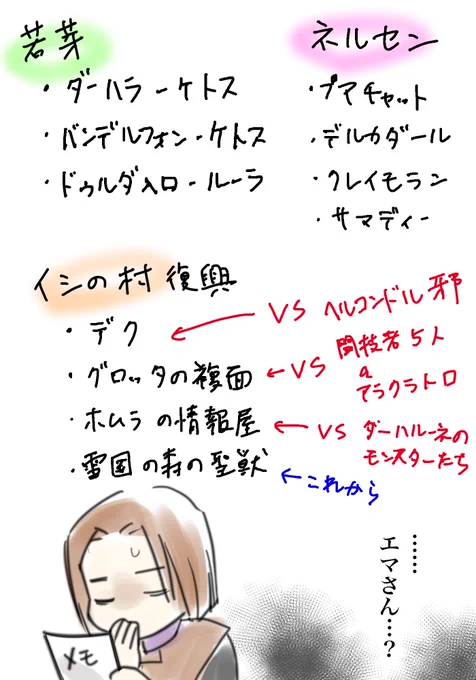 若芽
・ダーハラーケトス
・バンデルフォン-ケトス
・ドゥルダ入口-ルーラ
ネルセン
・プマチャット
・デルカダール
・クレイモラン
・サマディー
イシの村復興
・デク
← VS ヘルコンドル邪
・グロッタの複面
← VS 闘技者5人
a
アラクラトロ
・ホムラの情報屋
← VS ダーハルーネの
モンスターたち
・雪国の森の聖獣
← これから
……
エマさん…?
メモ